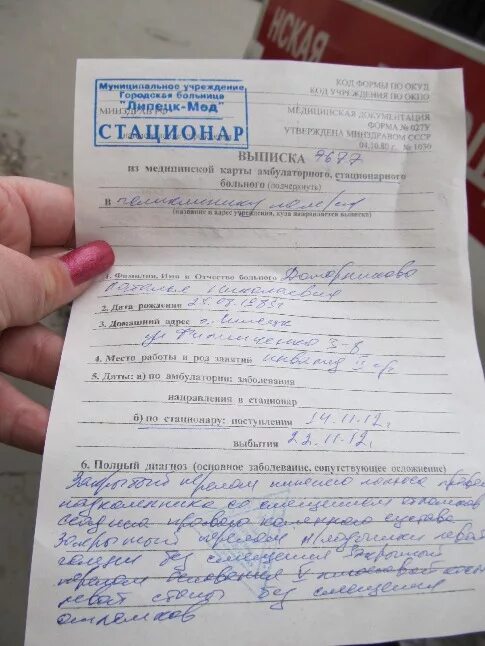 НСКАЯ
КОД ФОРМЫ ПО ОКУД
КОД УЧРЕЖДЕНИЯ ПО ОКПО
Муниципальное учреждение
Городская больница
"Липецк-Мед"
СТАЦИОНАР
МИНЗДРАВ РФ
МЕДИЦИНСКАЯ ДОКУМЕНТАЦИЯ
ФОРМА № 027У
УТВЕРЖДЕНА МИНЗДРАВОМ СССР
04.10.80 г. № 1030
ВЫПИСКА 7687
из медицинской карты амбулаторного, стационарного
больного (подчеркнуть)
в поликлинику
(название и адрес учреждения, куда направляется выписка)
1. Фамилия, Имя и Отчество больного
Наталья Николаевна
2. Дата рождения
3. Домашний адрес г. Липецк
ул 3-8
4. Место работы и род занятий инвалид II гр
5. Даты: а) по амбулатории: заболевания
направления в стационар
б) по стационару: поступления 14.11.12.
выбытия 22.11.12.
6. Полный диагноз (основное заболевание, сопутствующее осложнение)
Закрытый перелом нижнего полюса правого
надколенника со смещением отломков
правого коленного сустава
Закрытый перелом м/лодыжки левой
голени без смещения Закрытый
перелом основания V плюсневой кости
левой стопы без смещения
отломков